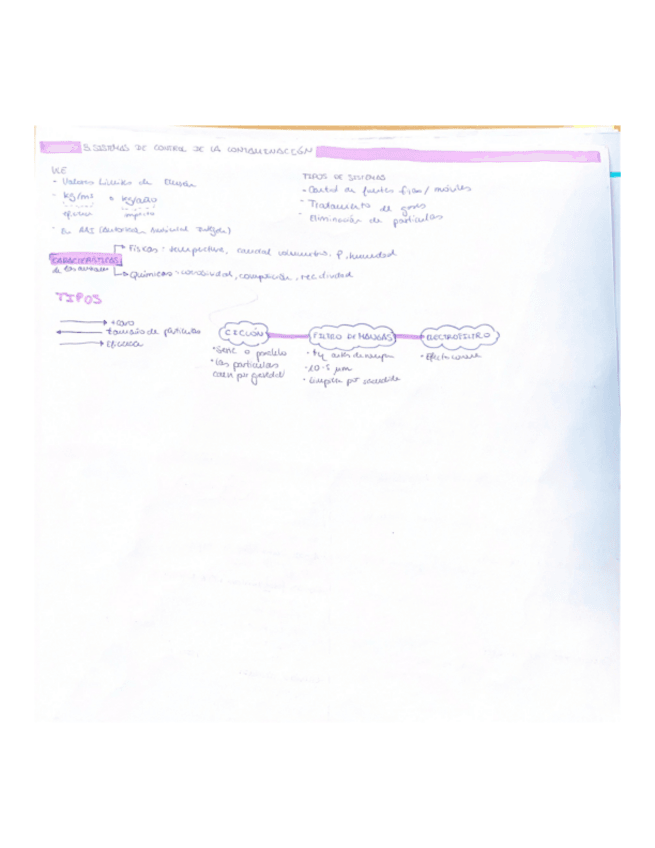 8. SISTEMAS DE CONTROL DE LA CONTAMINACIÓN
VLE
- Valores límites de Emisión
- kg/m³ o kg/año
eficacia impacto
- En AAI (Autorización Ambiental Integrada)
TIPOS DE SISTEMAS
- Control en fuentes fijas/móviles
- Tratamiento de gases
- Eliminación de partículas
CARACTERÍSTICAS
de los
Físicas: temperatura, caudal volumétrico, P, humedad
Químicas: corrosividad, composición, reactividad
TIPOS
+ caro
tamaño de partículas
eficacia
CICLÓN
· Serie o paralelo
· Las partículas
caen por gravedad
FILTRO DE MANGAS
· 10-5 µm
· Limpieza por
ELECTROFILTRO
· Efecto corona